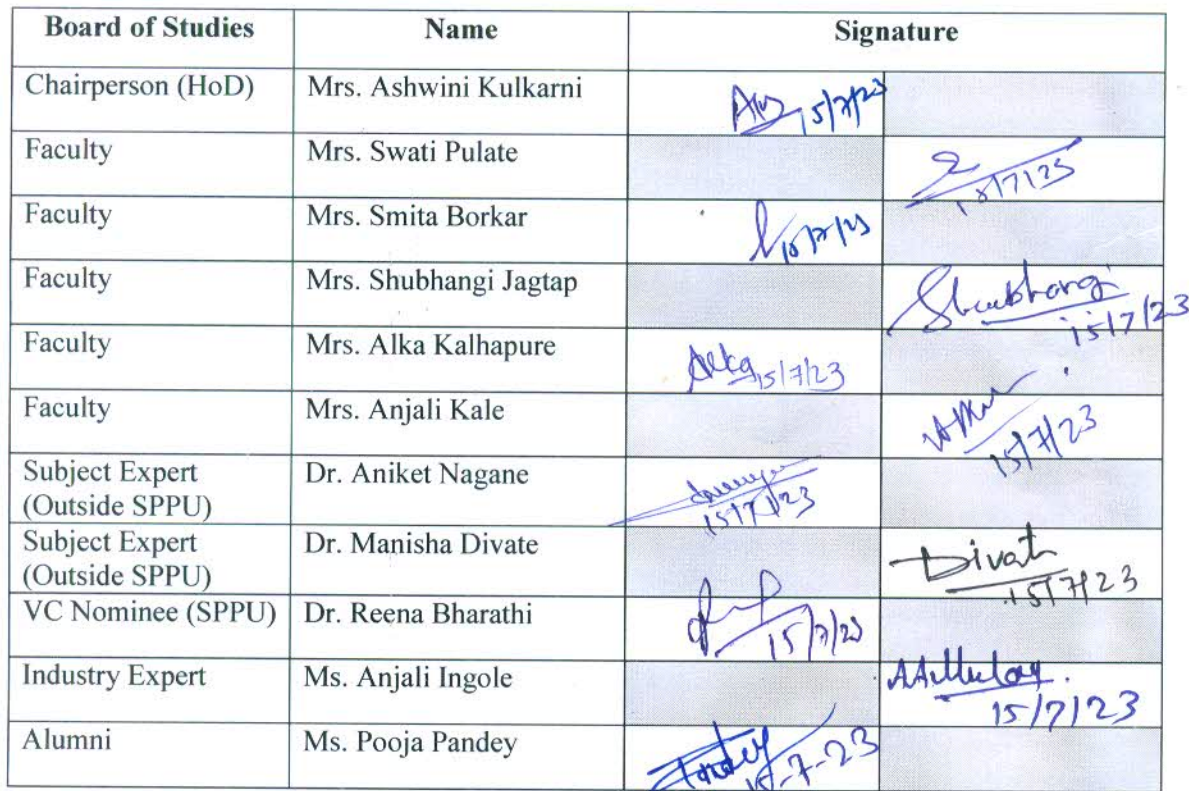 Board of Studies Name Signature
Chairperson (HoD) Mrs. Ashwini Kulkarni 15/7/23
Faculty Mrs. Swati Pulate 15/7/23
Faculty Mrs. Smita Borkar 15/7/23
Faculty Mrs. Shubhangi Jagtap Shubhangi 15/7/23
Faculty Mrs. Alka Kalhapure Alka 15/7/23
Faculty Mrs. Anjali Kale 15/7/23
Subject Expert Dr. Aniket Nagane
(Outside SPPU) 15/7/23
Subject Expert Dr. Manisha Divate Divate
(Outside SPPU) 15/7/23
VC Nominee (SPPU) Dr. Reena Bharathi 15/7/23
Industry Expert Ms. Anjali Ingole
15/7/23
Alumni Ms. Pooja Pandey Pandey
15-7-23